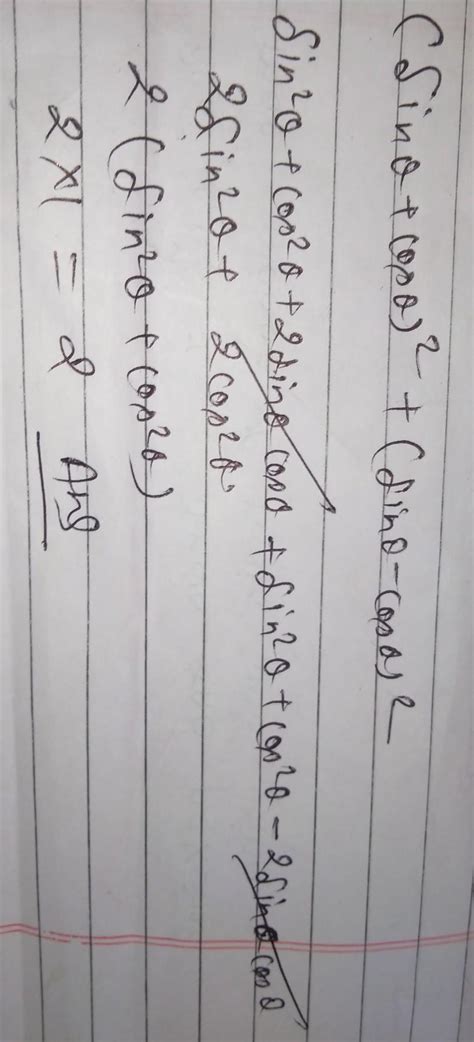 (sinθ + cosθ)² + (sinθ - cosθ)²
sin²θ + cos²θ + 2sinθ cosθ + sin²θ + cos²θ - 2sinθ cosθ
2sin²θ + 2cos²θ.
2(sin²θ + cos²θ)
2 × 1 = 2 Ans